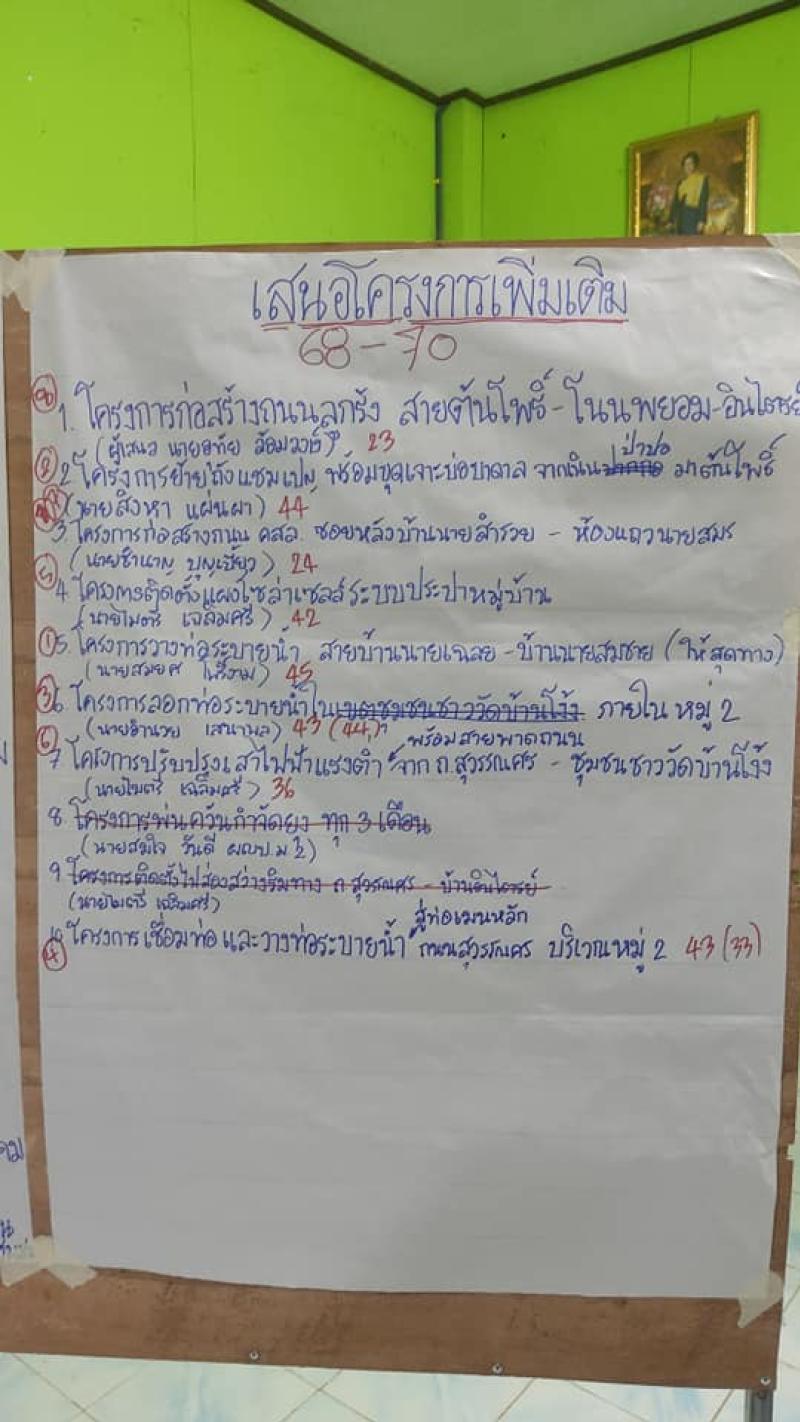 เสนอโครงการเพิ่มเติม
68-70
1. โครงการก่อสร้างถนนลูกรัง สายต้นโพธิ์-โนนพยอม-อินไตรย์
(ผู้เสนอ นายอุทัย ล้อมวงษ์) 23
② 2 โครงการย้ายถังแชมเปญ พร้อมขุดเจาะบ่อบาดาล จากเนิน ป่าปอ มาต้นโพธิ์
(นายสิงหา แผ่นผา) 44
3. โครงการก่อสร้างถนน คสล. ซอยหลังบ้านนายสำรวย - ห้องแถวนายสมร
(นายชำนาญ บุญเขียว) 24
⑤ 4 โครงการติดตั้งแผงโซล่าเซลล์ระบบประปาหมู่บ้าน
(นายไมตรี เฉลิมศรี) 42
① 5. โครงการวางท่อระบายน้ำ สายบ้านนายเฉลย - บ้านนายสมชาย (ให้สุดทาง)
(นายสมยศ ) 45
③ 6 โครงการลอกท่อระบายน้ำในเขตชุมชนชาววัดบ้านโง้ง ภายใน หมู่ 2
(นายอำนวย เสนามล) 43 (44) พร้อมสายพาดถนน
⑥ 7 โครงการปรับปรุงเสาไฟฟ้าแรงต่ำ จาก ถ.สุวรรณศร - ชุมชนชาววัดบ้านโง้ง
(นายไมตรี เฉลิมศรี) 36
8 โครงการพ่นควันกำจัดยุง ทุก 3 เดือน
(นายสมใจ วันดี ผญบ.ม 2)
9 โครงการติดตั้งไฟส่องสว่างริมทาง ถ.สุวรรณศร - บ้านอินไตรย์
(นายไมตรี เฉลิมศรี) สู่ท่อเมนหลัก
④ 10 โครงการเชื่อมท่อ และวางท่อระบายน้ำ ถนนสุวรรณศร บริเวณหมู่ 2 43 (33)